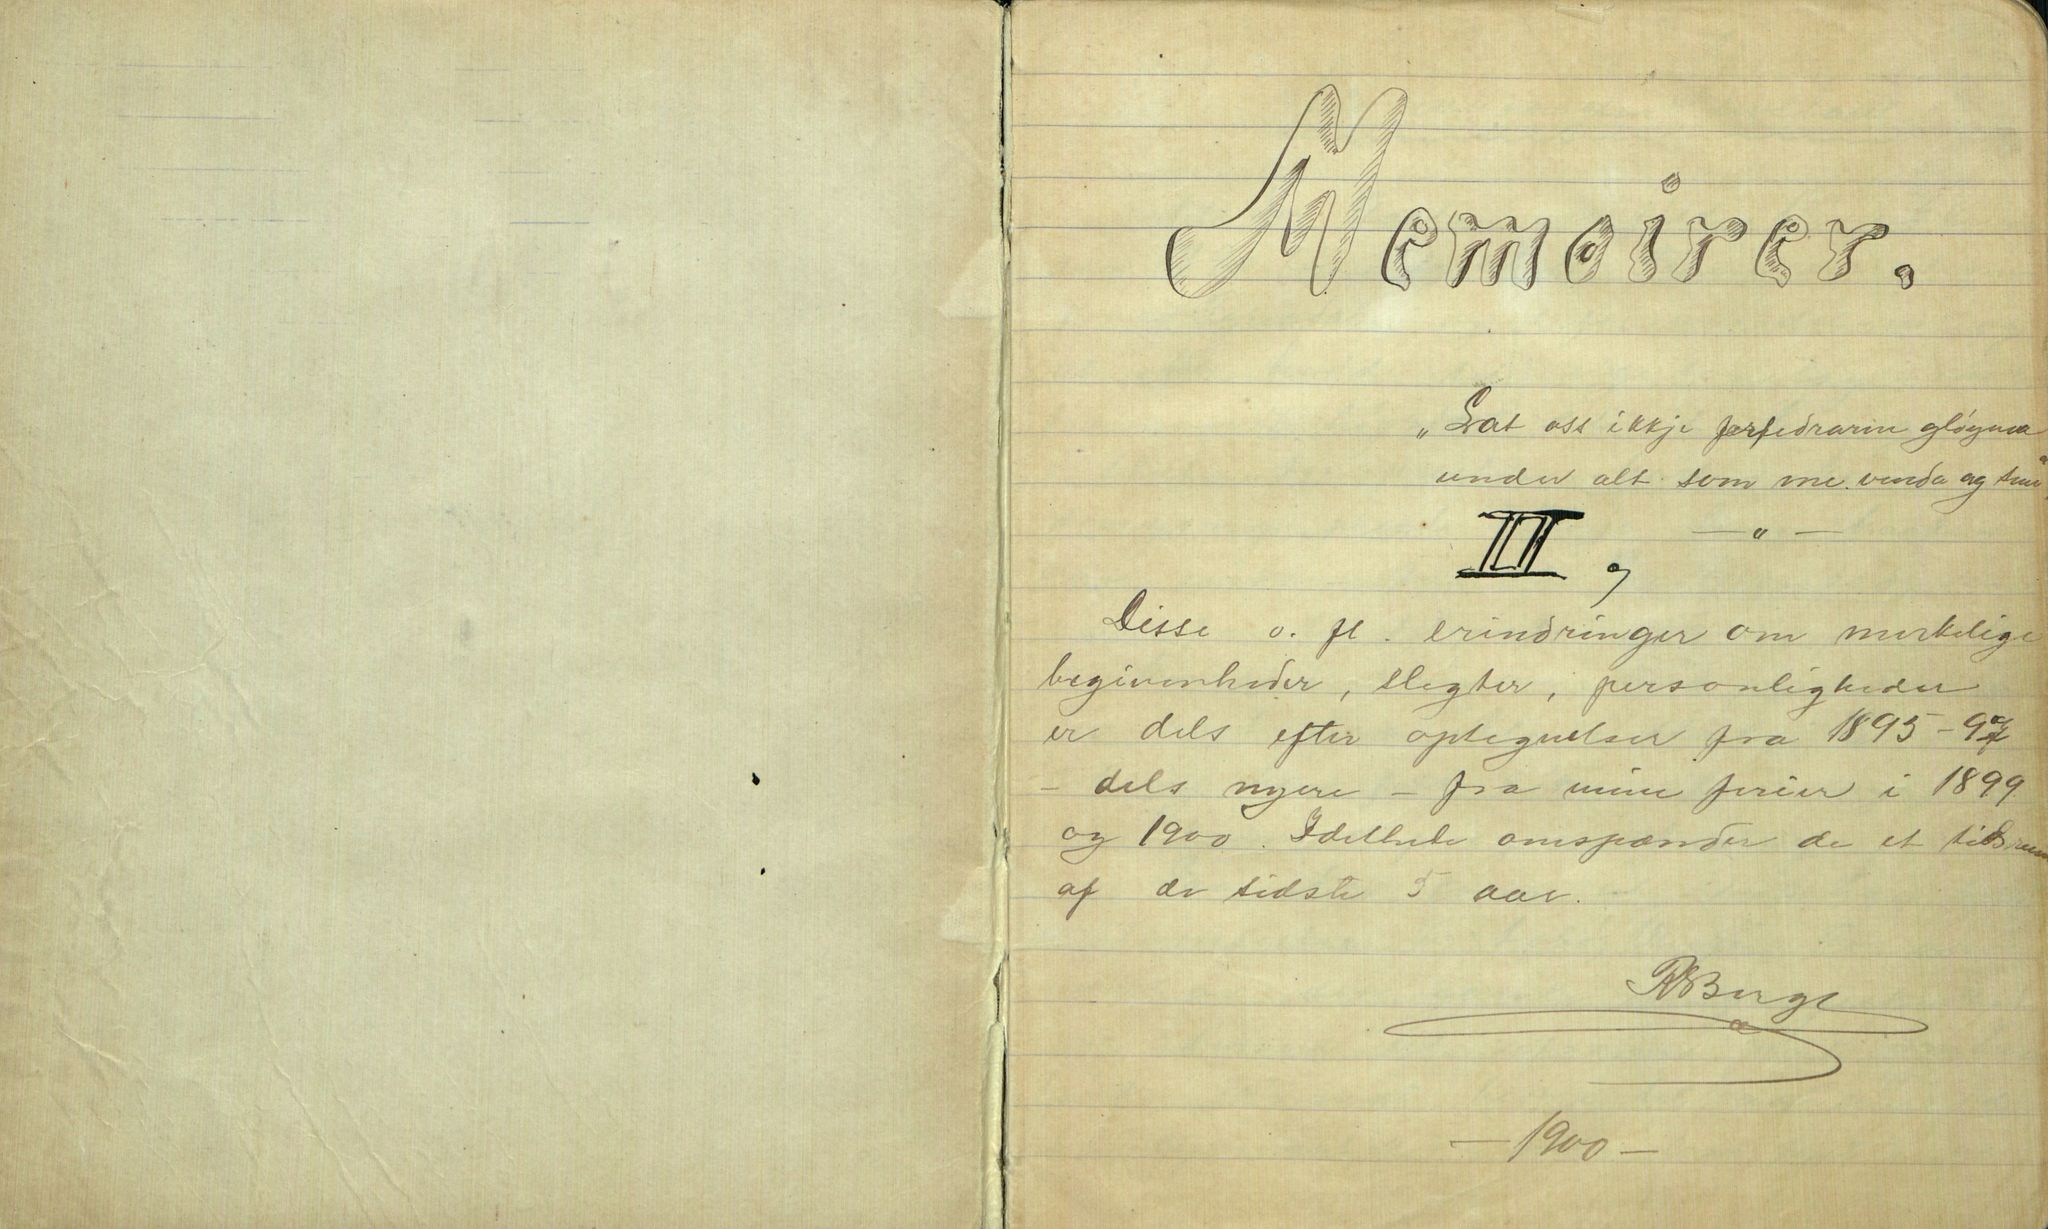 Memoirer.
„Lat oss ikkje forfedrarne gløyma
under alt som me venda og snu"
— „ —
II,
Disse o. fl. erindringer om merkelige
begivenheder, slegter, personligheder
er dels efter optegnelser fra 1895-97
- dels nyere - fra mine ferier i 1899
og 1900. Idethele omspænder de et tidsrum
af de sidste 5 aar.
RSBerge
— 1900 —